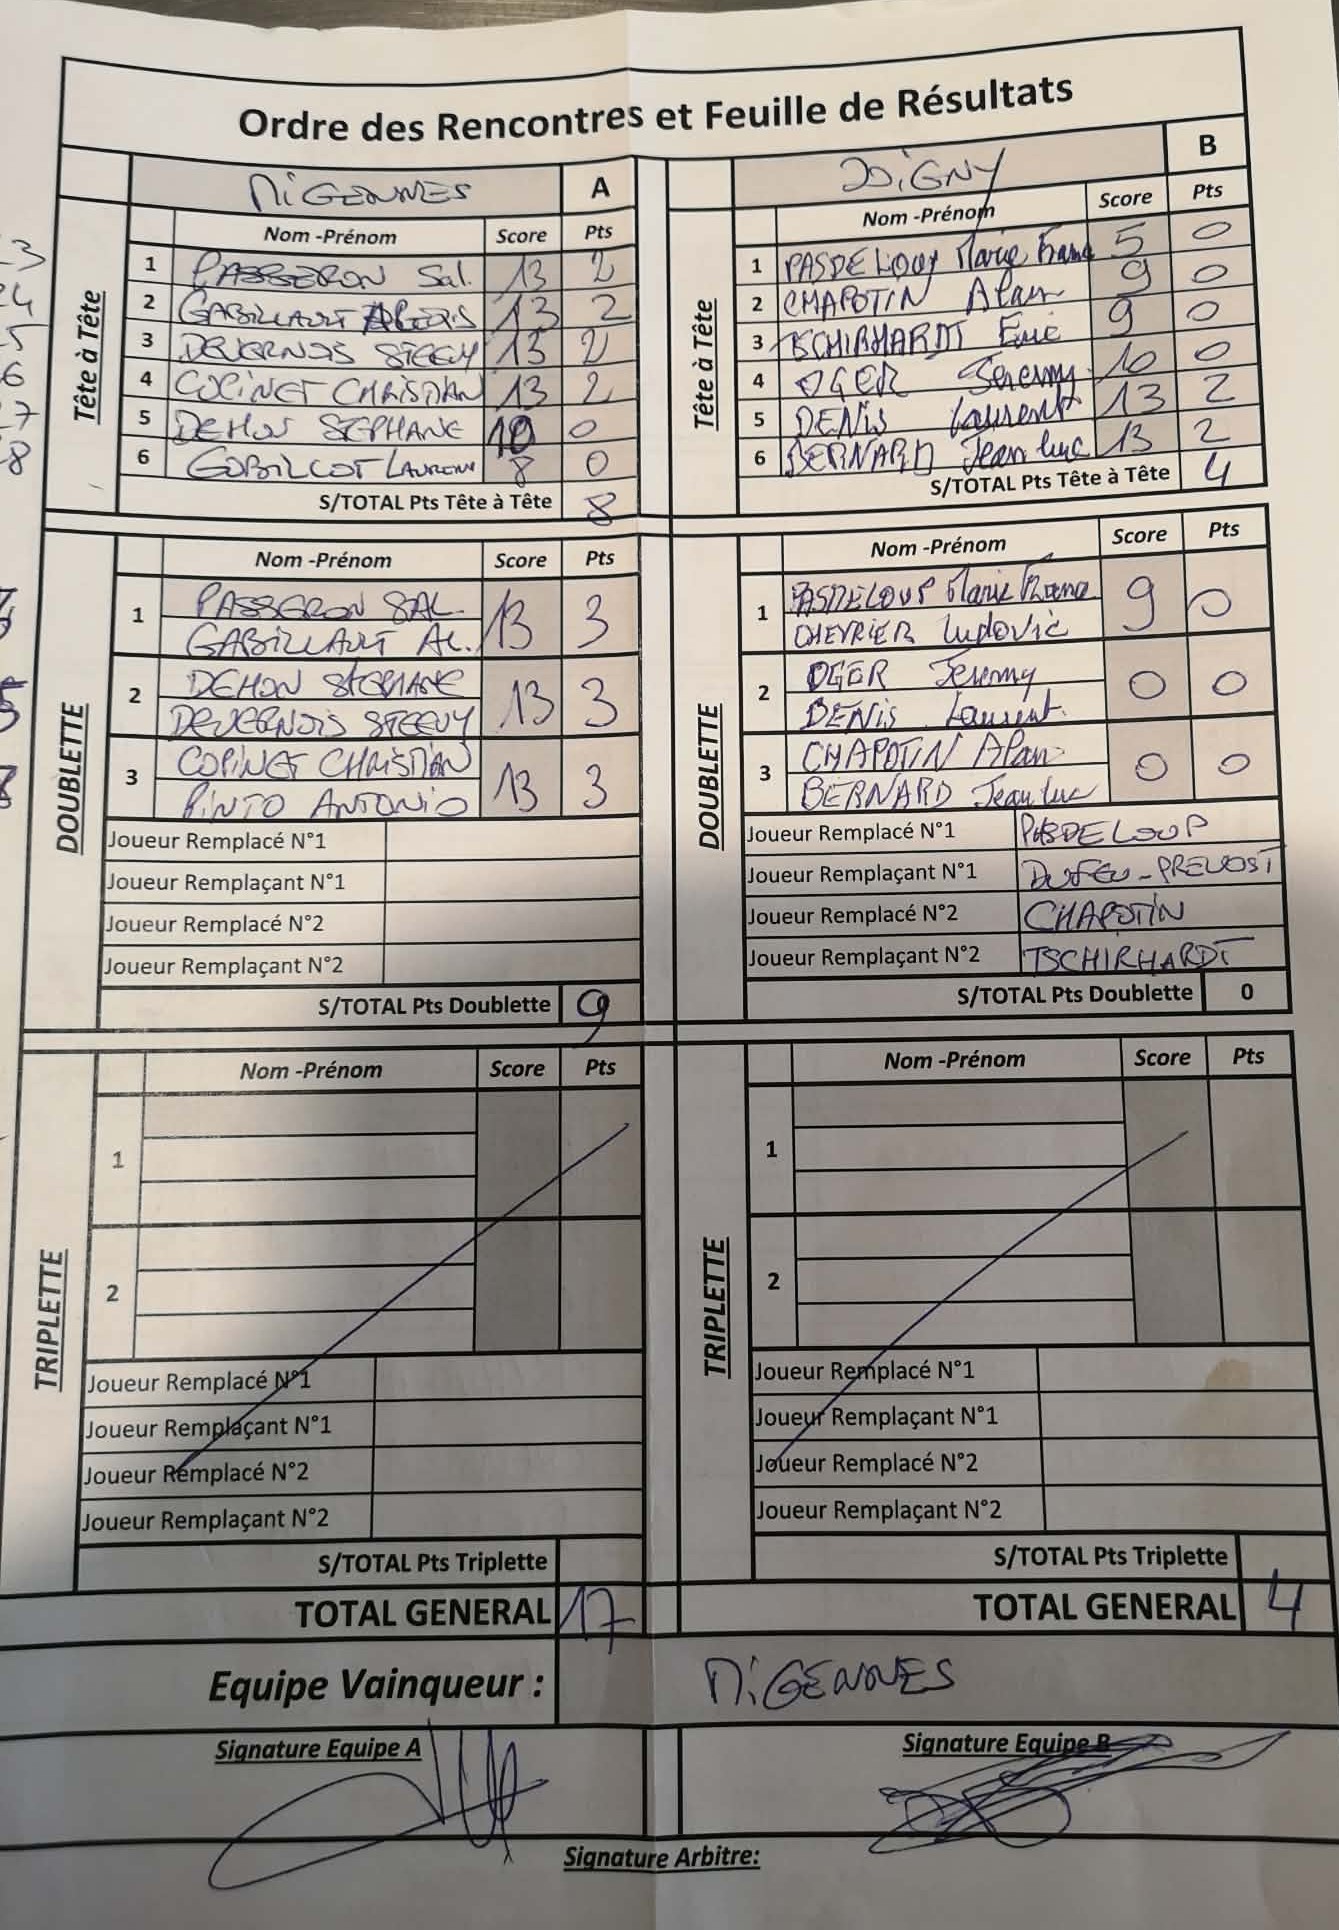 Ordre des Rencontres et Feuille de Résultats
MIGENNES A
Tête à Tête
Nom -Prénom Score Pts
1 PASSERON Sal. 13 2
2 GABILLAULT ALEXIS 13 2
3 DEVERNOIS STEEVY 13 2
4 COPINET CHRISTIAN 13 2
5 DEHON STEPHANE 10 0
6 GOBILLOT LAURENT 8 0
S/TOTAL Pts Tête à Tête 8
JOIGNY B
Tête à Tête
Nom -Prénom Score Pts
1 PASDELOUP Marie Franc 5 0
2 CHAPOTIN Alan 9 0
3 TSCHIRHARDT Eric 9 0
4 OGER Jeremy 10 0
5 DENIS Laurent 13 2
6 BERNARD Jean luc 13 2
S/TOTAL Pts Tête à Tête 4
DOUBLETTE
Nom -Prénom Score Pts
1 PASSERON SAL. 13 3
GABILLAULT AL.
2 DEHON STEPHANE 13 3
DEVERNOIS STEEVY
3 COPINET CHRISTIAN 13 3
PINTO ANTONIO
Joueur Remplacé N°1
Joueur Remplaçant N°1
Joueur Remplacé N°2
Joueur Remplaçant N°2
S/TOTAL Pts Doublette 9
DOUBLETTE
Nom -Prénom Score Pts
1 PASDELOUP Marie Franc 9 0
CHEVRIER Ludovic
2 OGER Jeremy 0 0
DENIS Laurent
3 CHAPOTIN Alan 0 0
BERNARD Jean luc
Joueur Remplacé N°1 PASDELOUP
Joueur Remplaçant N°1 DUFEU-PREVOST
Joueur Remplacé N°2 CHAPOTIN
Joueur Remplaçant N°2 TSCHIRHARDT
S/TOTAL Pts Doublette 0
TRIPLETTE
Nom -Prénom Score Pts
1
2
Joueur Remplacé N°1
Joueur Remplaçant N°1
Joueur Remplacé N°2
Joueur Remplaçant N°2
S/TOTAL Pts Triplette
TOTAL GENERAL 17
TRIPLETTE
Nom -Prénom Score Pts
1
2
Joueur Remplacé N°1
Joueur Remplaçant N°1
Joueur Remplacé N°2
Joueur Remplaçant N°2
S/TOTAL Pts Triplette
TOTAL GENERAL 4
Equipe Vainqueur : MIGENNES
Signature Equipe A
Signature Equipe B
Signature Arbitre: